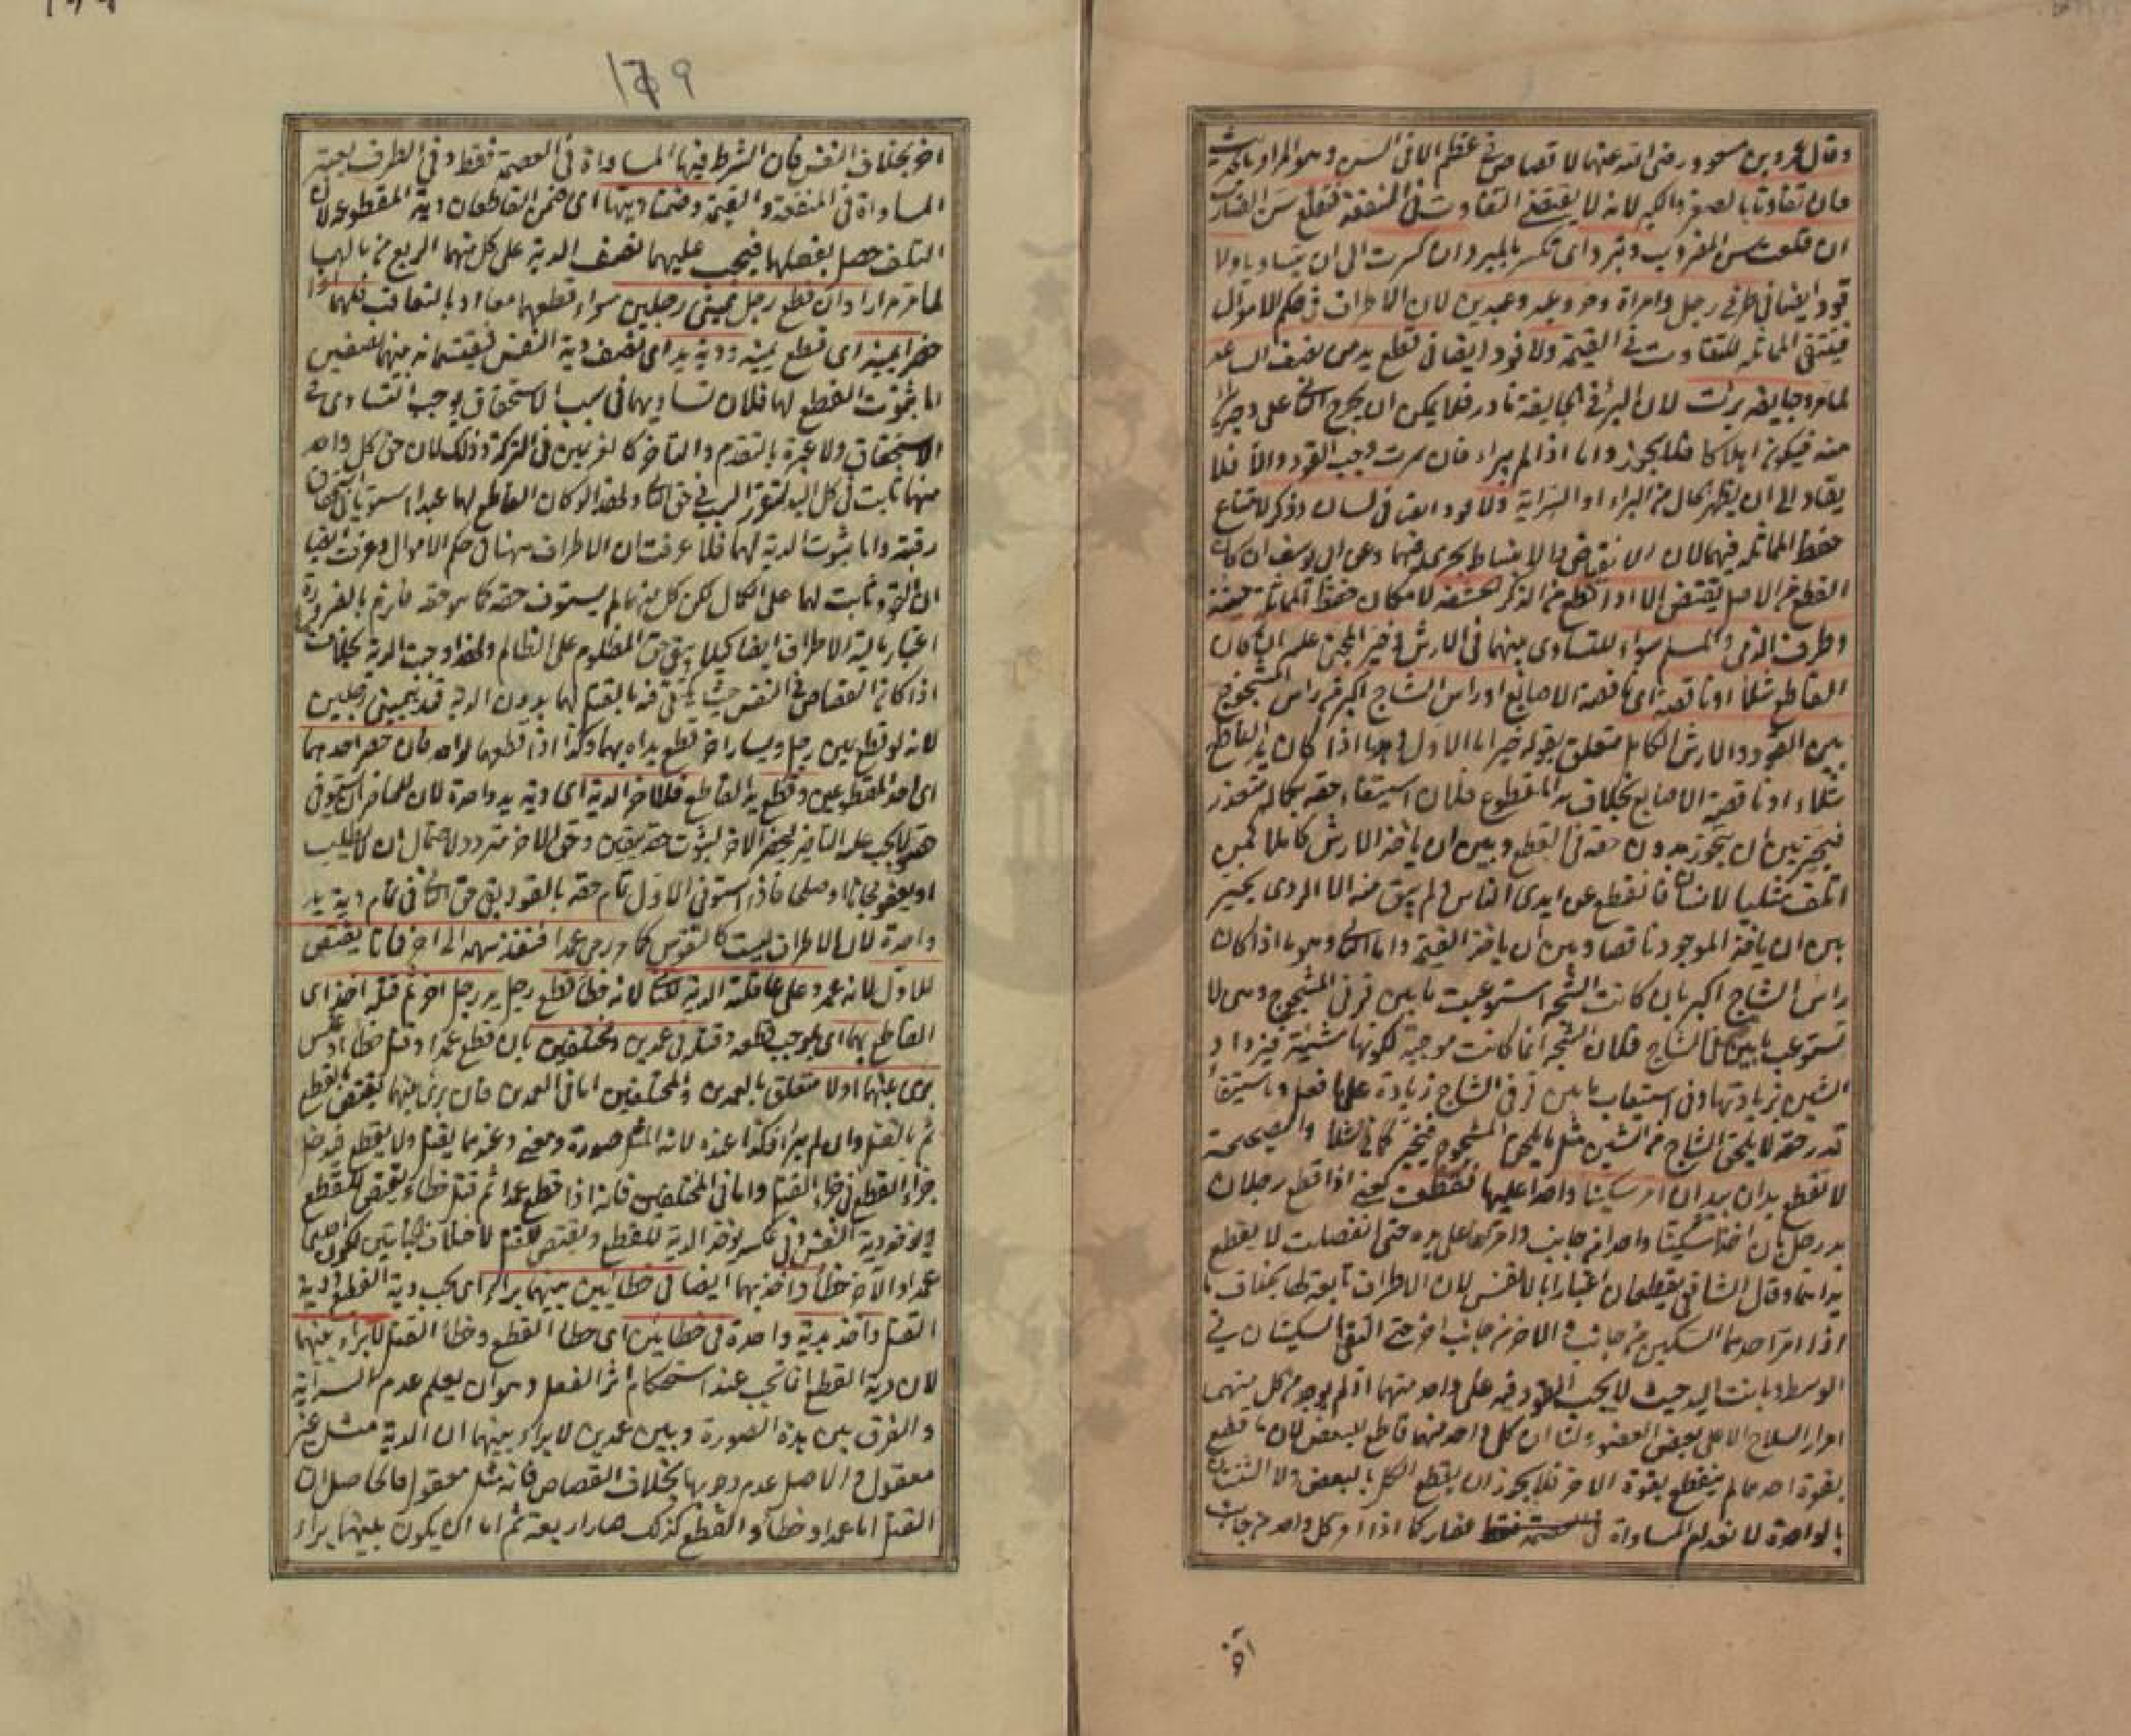 وقال عمر وبن مسعود رضى الله عنهما لا قصاص فى عظم الا فى السن وهو المراد بالحديث
فان تفاوتا بالصغر والكبر لانه لا يقتضى التفاوت فى المنفعة فتقلع سن الضارب
ان قلعت سن المضروب وتبرد اى تكسر بالمبرد ان كسرت الى ان يتساويا ولا
قود ايضا فى طرفى رجل وامراة وحر وعبد وعبدين لان الاطراف فى حكم الاموال
فينتفى المماثله للتفاوت فى القيمة ولا قود ايضا فى قطع يد من نصف الساعد
لما مر وجايفه برئت لان البرء فى الجايفة نادر فلا يمكن ان يجرح الثانى على وجه يبرأ
منه فيكون اهلاكا فلا يجوز واما اذا لم يبراء فان سرت وجب القود والا فلا
يقاد الى ان يظهر الحال من البراء او السراية ولا قود ايضا فى لسان وذكر لامتناع
حفظ المماثله فيهما لان الانقباض والانبساط يجرى فيهما وعن ابى يوسف ان كان
القطع من الاصل يقتص الا اذا قطع من الذكر الحشفه لامكان حفظ المماثلة حينئذ
وطرف الذمى والمسلم سواء للتساوى بينهما فى الارش وخير المجنى عليه ان كان
القاطع شلا او ناقصة اى ناقصة الاصابع او راس الشاج اكبر من راس المشجوج
بين القود والارش الكامل متعلق بقوله خير اما الاول وهو ما اذا كان يد القاطع
شلاء او ناقصة الاصابع بخلاف يد المقطوع فلان استيفاء حقه بكماله متعذر
فيخير بين ان يتجوز بدون حقه فى القطع وبين ان ياخذ الارش كاملا كمن
اتلف مثليا لانسان فانقطع عن ايدى الناس ولم يبق منه الا الردى يخير
بين ان ياخذ الموجود ناقصا وبين ان ياخذ القيمة واما الثانى وهو ما اذا كان
راس الشاج اكبر بان كانت الشجه استوعبت ما بين قرنى المشجوج وهى لا
تستوعب ما بين قرنى الشاج فلان الشجه انما كانت موجبة لكونها مشينة فيزداد
الشين بزيادتها وفى استيعاب ما بين قرنى الشاج زيادة على ما فعل وباستيفاء
قدر حقه لا يلحق الشاج من الشين مثل ما يلحق المشجوج فيخير كما فى الشلا والصحيحة
لا تقطع يدان بيد ان امر سكينا واحدا عليها فقطعت يعنى اذا قطع رجلان
يد رجل بان اخذا سكينا واحدا من جانب وامراه على يده حتى انفصلت لا يقطع
يداهما وقال الشافعى يقطعان اعتبارا بالنفس لان الاطراف تابعة لها بخلاف ما
اذا امر احدهما السكين من جانب والاخر من جانب اخر حتى التقى السكينان فى
الوسط وبانت اليد حيث لا يجب القود فيه على واحد منهما اذ لم يوجد من كل منهما
امرار السلاح الا على بعض العضو ولنا ان كل واحد منهما قاطع للبعض لان ما قطع
بقوة احدهما لم ينقطع بقوة الاخر فلا يجوز ان يقطع الكل بالبعض ولا الثنتان
بالواحدة لانعدام المساواة فصار كما اذا امر كل واحد من جانب
آخر
١٦٩
اخر بخلاف النفس فان الشرط فيها المساواة فى العصمة فقط وفى الطرف يعتبر
المساواة فى المنفعة والقيمة وضمنا ديتها اى ضمن القاطعان دية المقطوعه لان
التلف حصل بفعلهما فيجب عليهما نصف الدية على كل منهما الربع من مالهما
لما مر مرارا وان قطع رجل يمينى رجلين سواء قطعهما معا او بالتعاقب فلهما
حضرا يمينه اى قطع يمينه ودية يد اى نصف دية النفس فيقتسمانه بينهما نصفين
اما ثبوت القطع لهما فلان تساويهما فى سبب الاستحقاق يوجب التساوى فى
الاستحقاق ولا عبرة بالتقدم والتاخر كالغريمين فى التركة وذلك لان حق كل واحد
منهما ثابت فى كل اليد لتقرر السبب فى حق الثانى ولهذا لو كان القاطع لهما عبدا استويا فى استحقاق
رقبته واما ثبوت الدية لهما فلما عرفت ان الاطراف ههنا فى حكم الاموال وعرفت ايضا
ان القود ثابت لهما على الكمال لكن كل منهما لم يستوف حقه كما هو حقه فلزم بالضرورة
اعتبار مالية الاطراف ايضا كيلا يبقى حق المظلوم على الظالم ولهذا وجبت الدية بخلاف ما
اذا كان القصاص فى النفس حيث يكتفى فيه بالقتل لهما بدون الدية قيد بيمينى رجلين
لانه لو قطع يمين رجل ويسار اخر تقطع يداه بهما وكذا اذا قطعهما لواحد فان حضر احدهما
اى احد المقطوعين وقطع يد القاطع فللاخر الدية اى دية يد واحدة لان للحاضر ان يستوفى
حقه ولا يجب عليه التاخير ليحضر الاخر لثبوت حقه بيقين وحق الاخر متردد لاحتمال ان لا يطلب
او يعفو مجانا او صلحا فاذا استوفى الاول تمام حقه بالقود بقى حق الثانى فى تمام دية يد
واحدة لان الاطراف ليست كالنفوس كما مر رمى عمدا فنفذ سهمه الى اخر فماتا يقتص
للاول لانه عمد وعلى عاقلته الدية للثانى لانه خطأ قطع رجل يد رجل اخر ثم قتله اخذ اى
القاطع بهما اى بموجب قطعه وقتله فى عمدين ومختلفين بان قطع عمدا وقتل خطأ او عكس
برى بينهما اولا متعلق بالعمدين والمختلفين اما فى العمدين فان برئ بينهما يقتص بالقطع
ثم بالقتل وان لم يبرا فكذا عنده لانه المثل صورة ومعنى وعندهما يقتل ولا يقطع فيدخل
جزاء القطع فى جزاء القتل واما فى المختلفين فانه اذا قطع عمدا ثم قتل خطاء يقتص للقطع
ويوخذ دية النفس وفى عكسه يوخذ الدية للقطع ويقتص للقتل لاختلاف الجنايتين لكون احدهما
عمدا والآخر خطأ واخذ بهما ايضا فى خطائين بينهما براء اى يجب دية القطع ودية
القتل واخذ بدية واحدة فى خطائين اى خطا القطع وخطا القتل لا براء بينهما
لان دية القطع انما تجب عند استحكام اثر الفعل وهو ان يعلم عدم السراية
والفرق بين هذه الصورة وبين عمدين لا براء بينهما ان الدية مثل غير
معقول والاصل عدم وجوبها بخلاف القصاص فانه مثل معقول فالحاصل ان
القتل اما عمد او خطأ والقطع كذلك صار اربعة ثم اما ان يكون بينهما براء